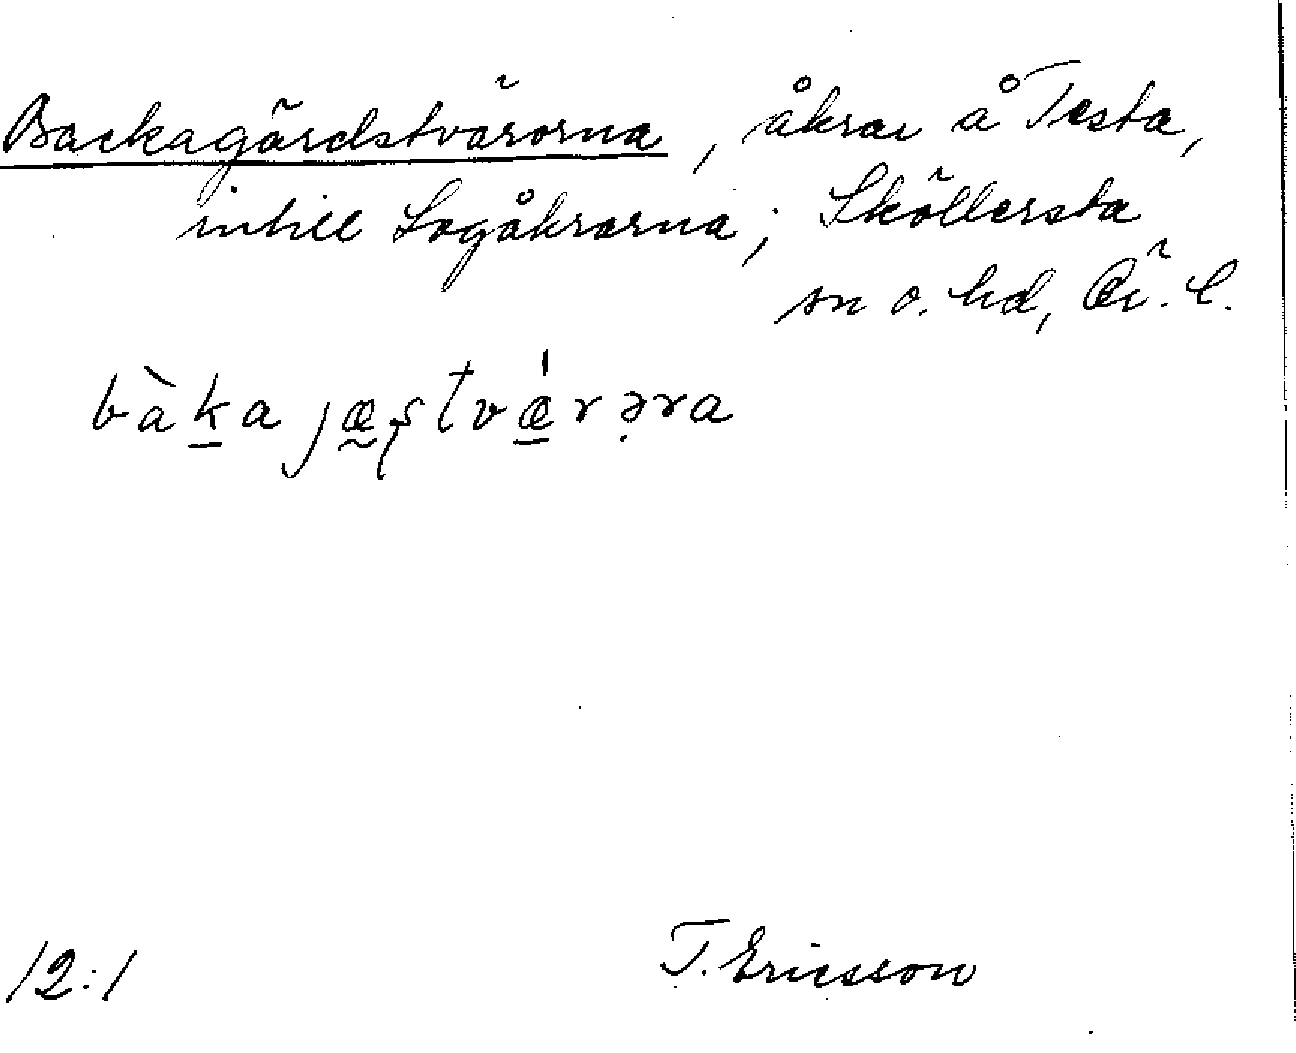 Backagärdstvärorna, åkrar å Testa,
intill Logåkrarna; Sköllersta
sn o. hd, Ör. l.
bàka jæştvǽrǝra
12:1
T. Ericsson